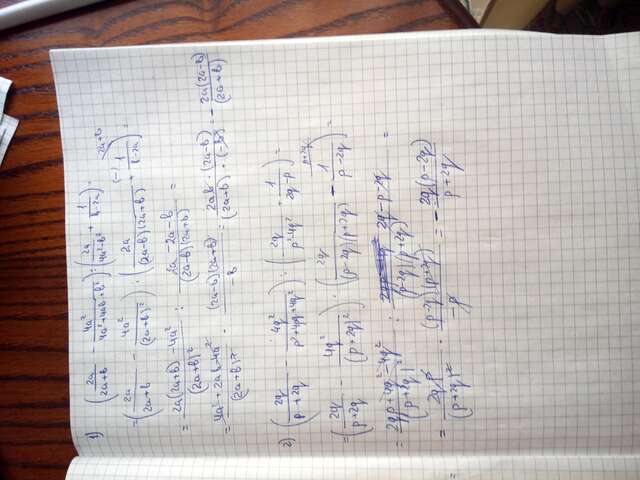 1) (2a/(2a+b) - 4a²/(4a²+4ab+b²)) : (2a/(4a²-b²) + 1/(b-2a)) =
= (2a/(2a+b) - 4a²/(2a+b)²) : (2a/((2a-b)(2a+b)) + (-) 1/(b-2a)) =
= (2a(2a+b) - 4a²)/(2a+b)² : (2a - 2a - b)/((2a-b)(2a+b)) =
= (4a² + 2ab - 4a²)/(2a+b)² · ((2a-b)(2a+b))/(-b) = (2ab · (2a-b))/((2a+b) · (-b)) = - (2a(2a-b))/(2a+b)
2) (2q/(p+2q) - 4q²/(p²+4pq+4q²)) : (2q/(p²-4q²) + 1/(2q-p)) =
= (2q/(p+2q) - 4q²/(p+2q)²) : (2q/((p-2q)(p+2q)) - 1/(p-2q)) =
= (2qp+4q²-4q²)/(p+2q)² : (2q-p-2q)/((p-2q)(p+2q)) =
= 2qp/(p+2q)² · ((p-2q)(p+2q))/(-p) = - (2q(p-2q))/(p+2q)
=